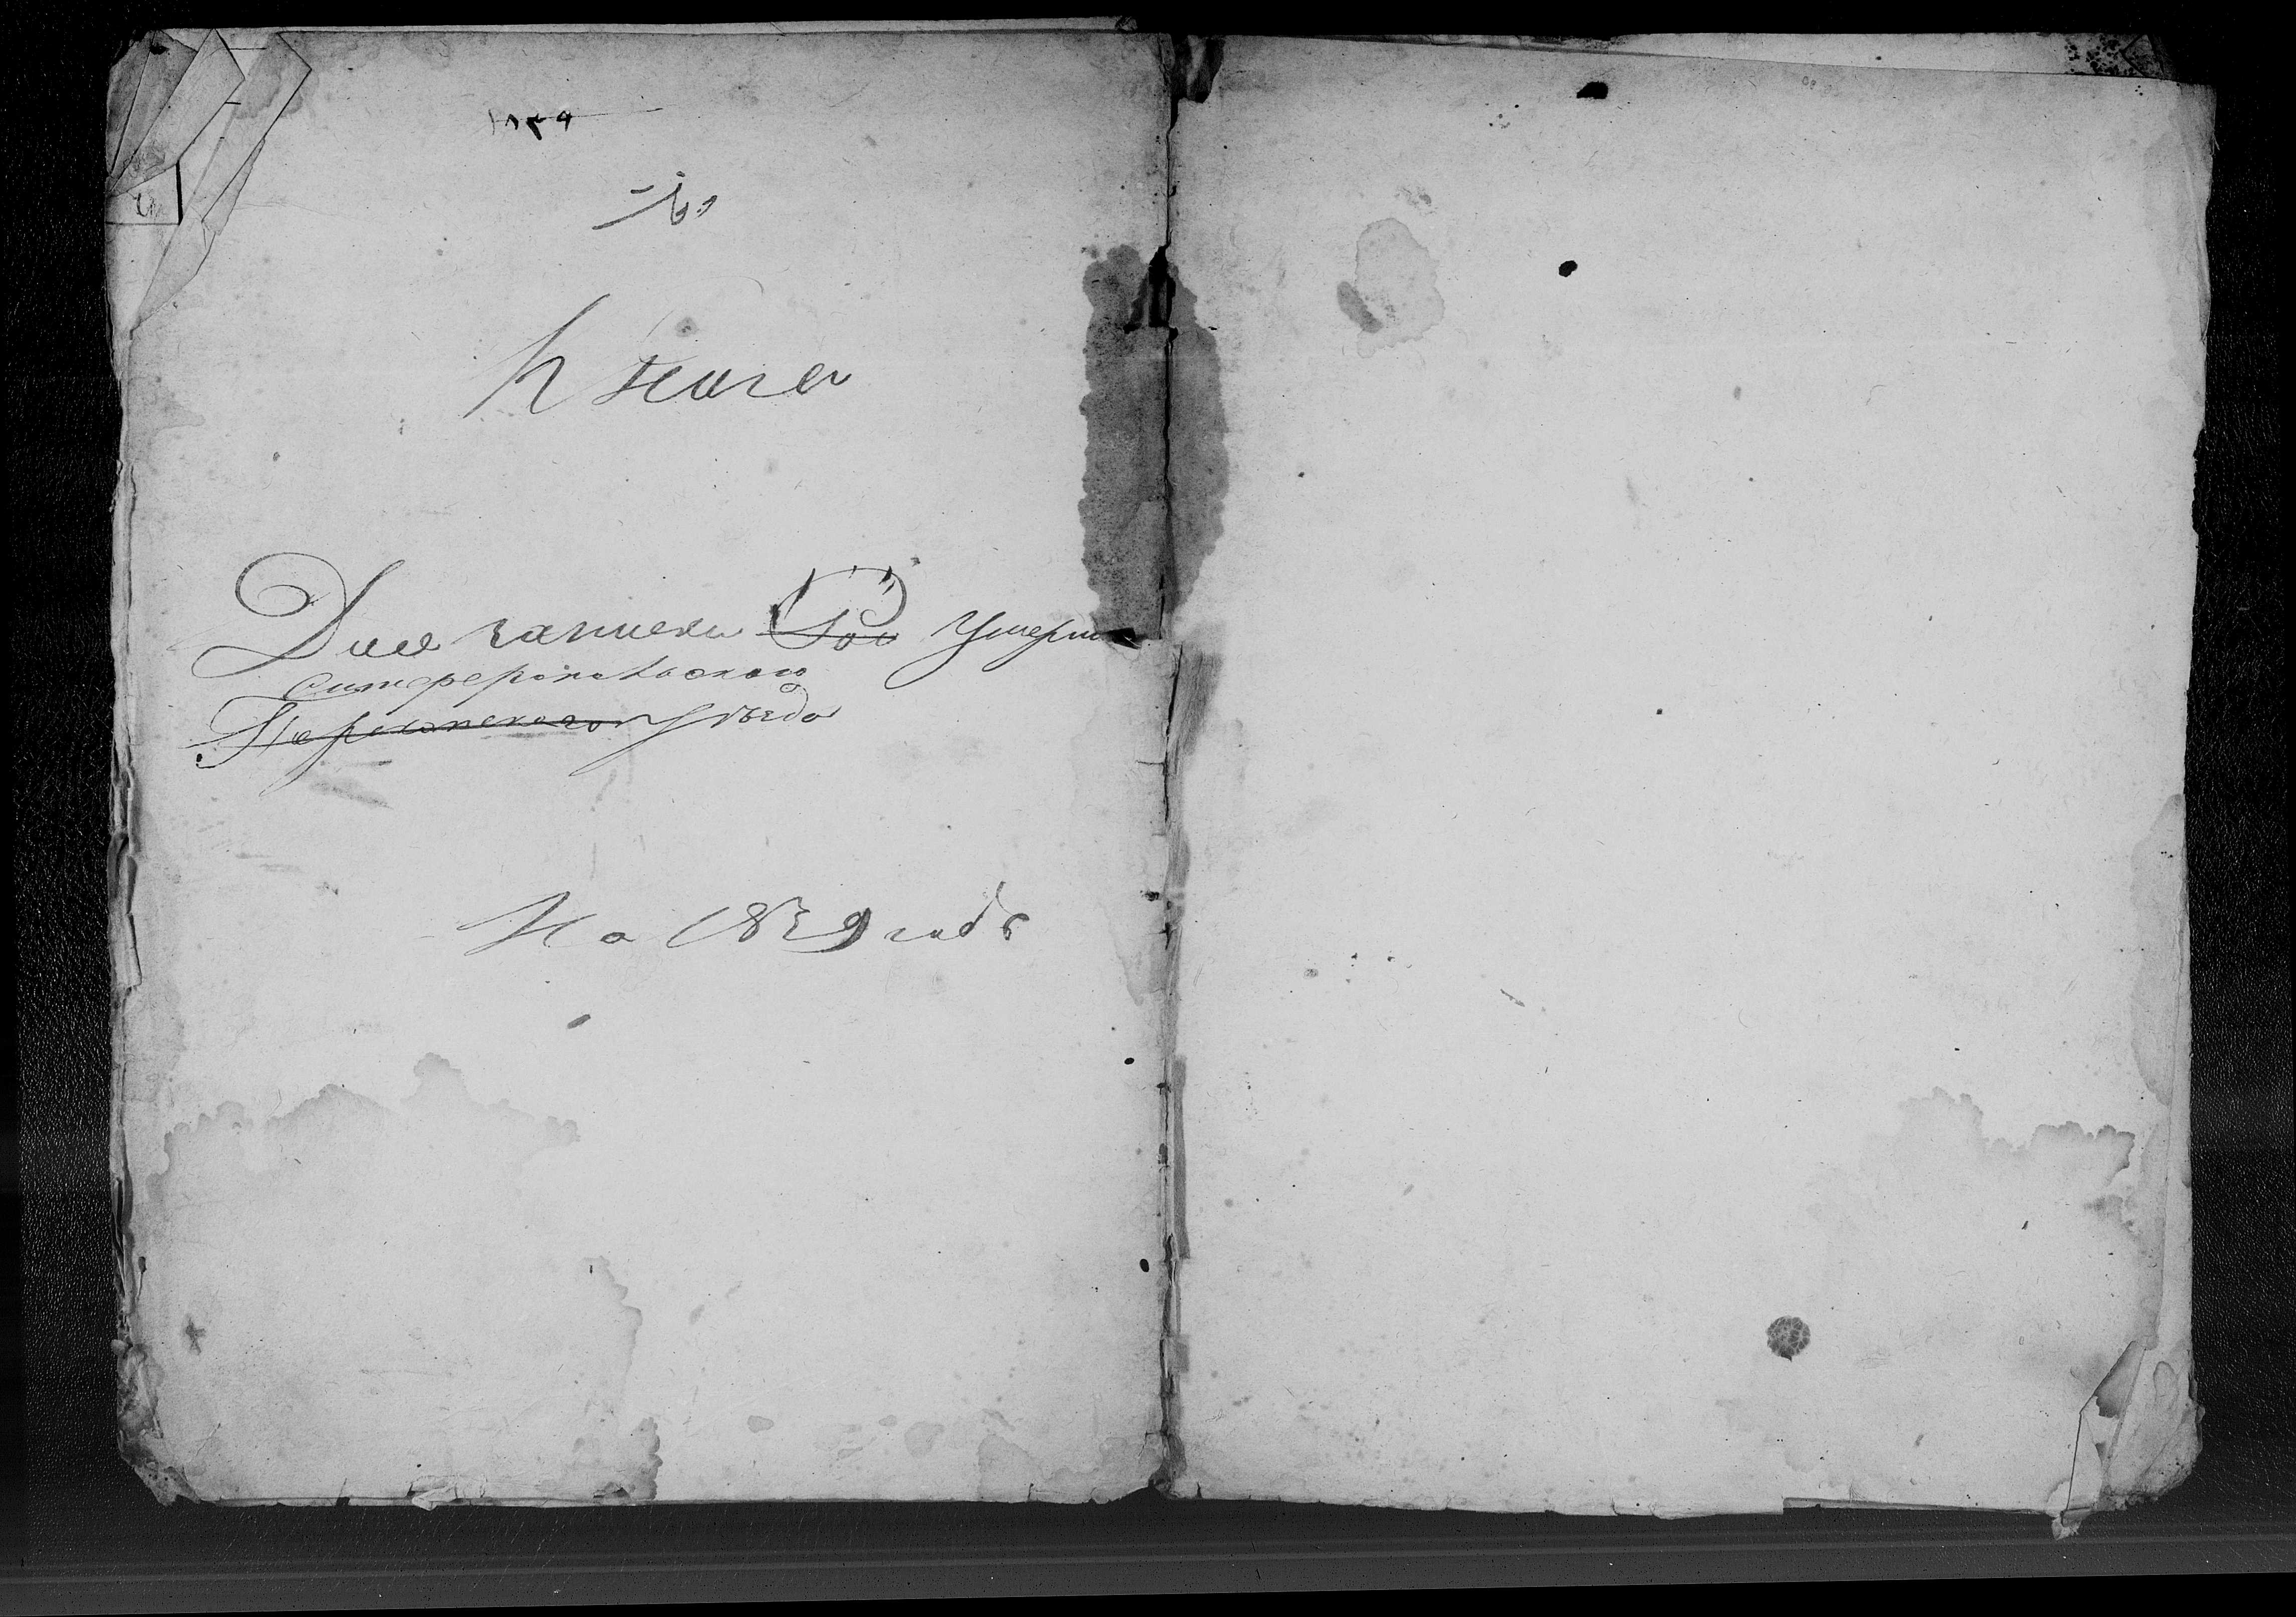 ١٨٣٩
وفات
Книга
Для записки Умерш
Симферопольскаго
Перекопскаго Уѣзда
На 1839 годъ